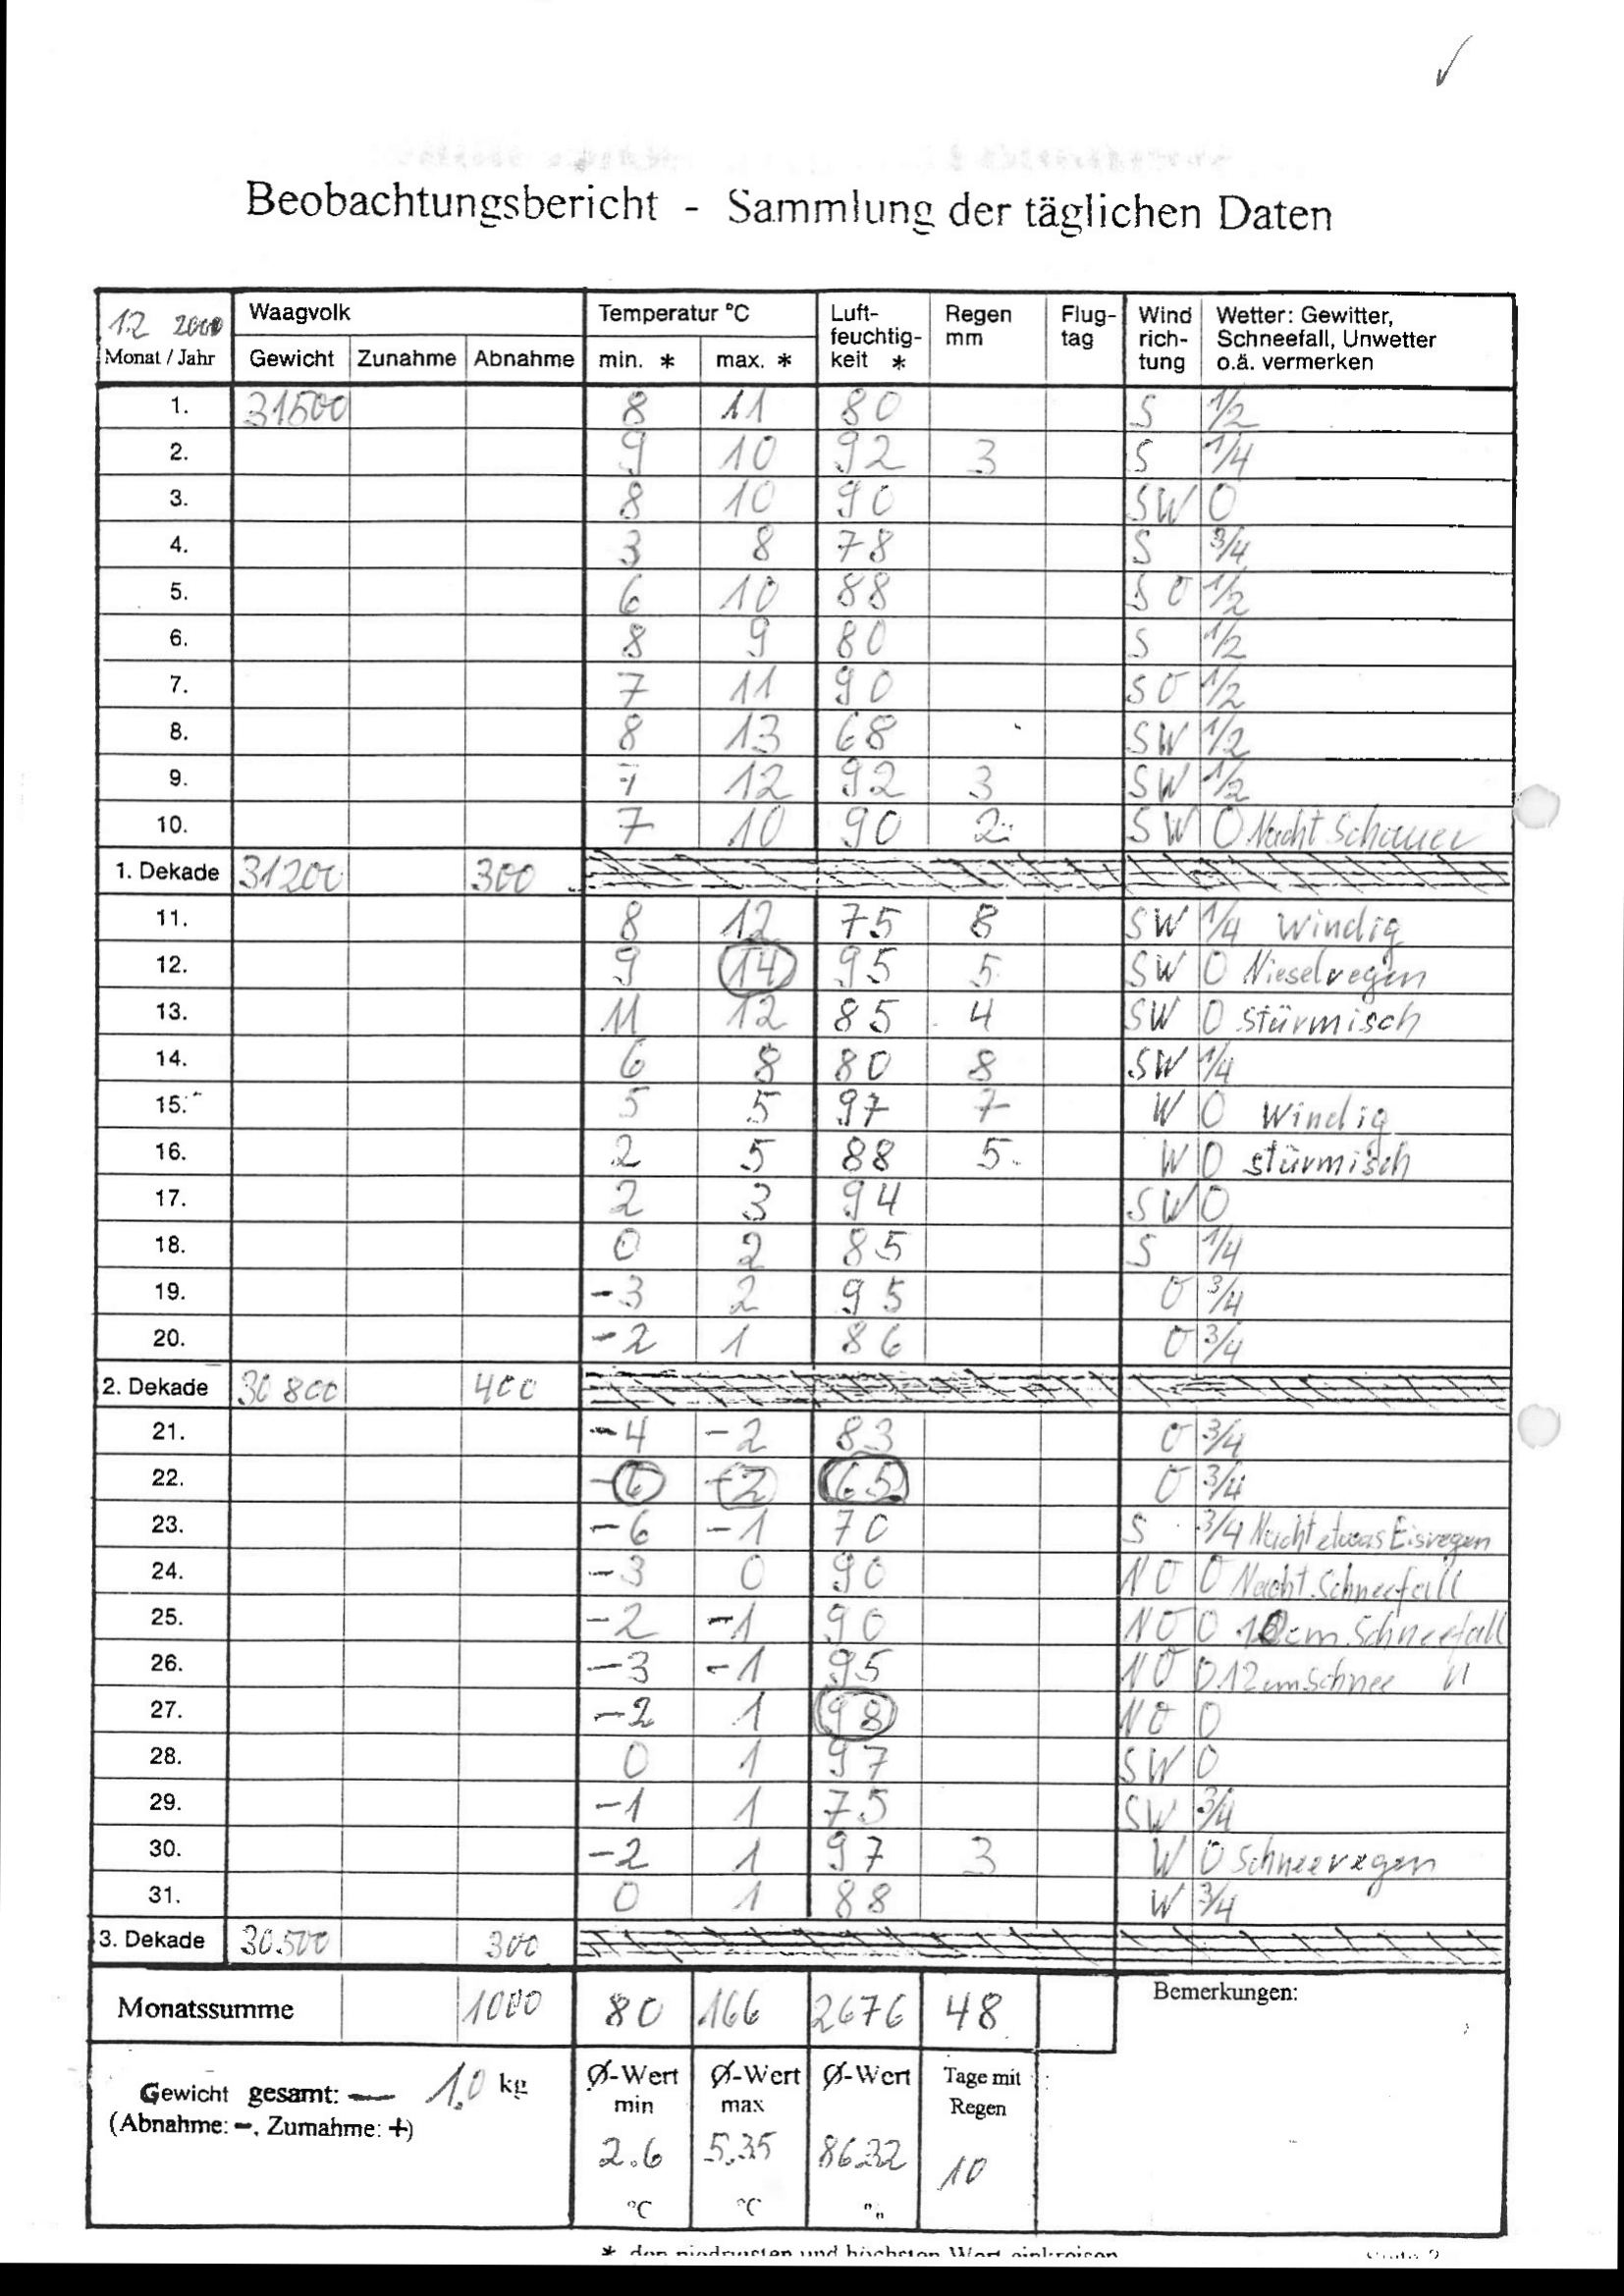 ✓
Beobachtungsbericht - Sammlung der täglichen Daten
12 2000 Monat / Jahr | Waagvolk | Temperatur °C | Luft-feuchtig-keit * | Regen mm | Flug-tag | Wind rich-tung | Wetter: Gewitter, Schneefall, Unwetter o.ä. vermerken
Gewicht | Zunahme | Abnahme | min. * | max. *
1. 31500 8 11 80 S 1/2
2. 9 10 92 3 S 1/4
3. 8 10 90 SW O
4. 3 8 78 S 3/4
5. 6 10 88 SO 1/2
6. 8 9 80 S 1/2
7. 7 11 90 SO 1/2
8. 8 13 68 SW 1/2
9. 7 12 92 3 SW 1/2
10. 7 10 90 2 SW O Nacht Schauer
1. Dekade 31200 300
11. 8 12 75 8 SW 1/4 Windig
12. 9 14 95 5 SW O Nieselregen
13. 11 12 85 4 SW O stürmisch
14. 6 8 80 8 SW 1/4
15. 5 5 97 7 W O Windig
16. 2 5 88 5 W O stürmisch
17. 2 3 94 SW O
18. 0 2 85 S 1/4
19. -3 2 95 O 3/4
20. -2 1 86 O 3/4
2. Dekade 30800 400
21. -4 -2 83 O 3/4
22. -6 -2 65 O 3/4
23. -6 -1 70 S 3/4 Nacht etwas Eisregen
24. -3 0 90 NO O Nacht Schneefall
25. -2 -1 90 NO O cm Schneefall
26. -3 -1 95 NO O 12 cm Schnee "
27. -2 1 98 NO O
28. 0 1 97 SW O
29. -1 1 75 SW 3/4
30. -2 1 97 3 W O Schneeregen
31. 0 1 88 W 3/4
3. Dekade 30500 300
Monatssumme 1000 80 166 2676 48 Bemerkungen:
Gewicht gesamt: — 1,0 kg
(Abnahme: -, Zumahme: +)
Ø-Wert min 2.6 °C
Ø-Wert max 5.35 °C
Ø-Wert 86.32
Tage mit Regen 10
* den niedrigsten und höchsten Wert einkreisen